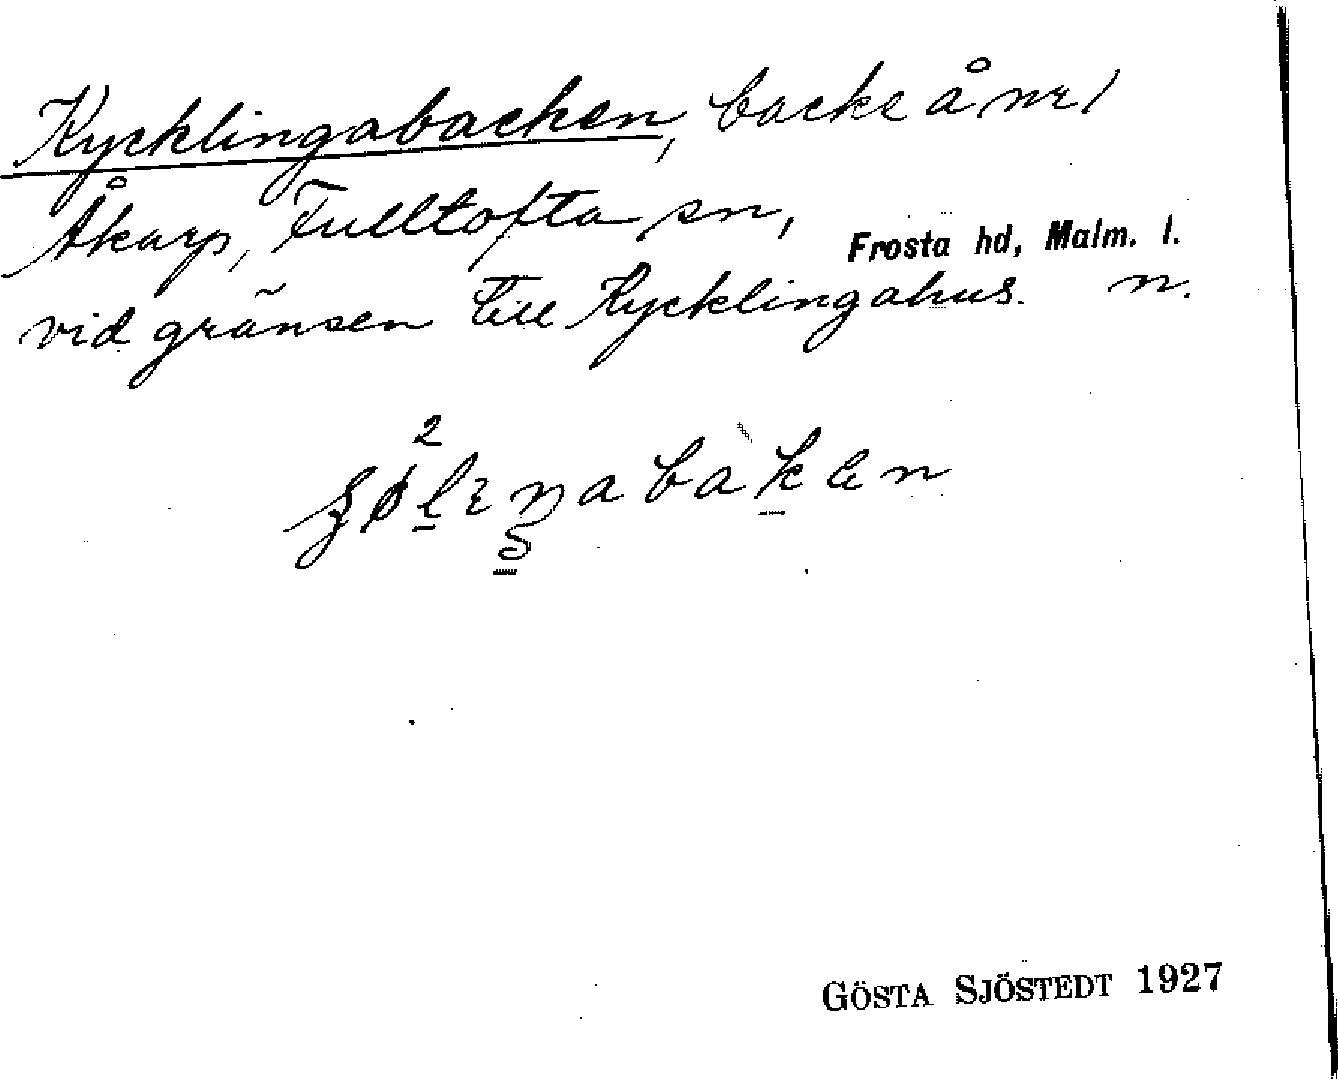 Kycklingabacken, backe å nr 1
Åkarp, Fulltofta sn, Frosta hd, Malm. l.
vid gränsen till Kycklingahus. n.
GÖSTA SJÖSTEDT 1927